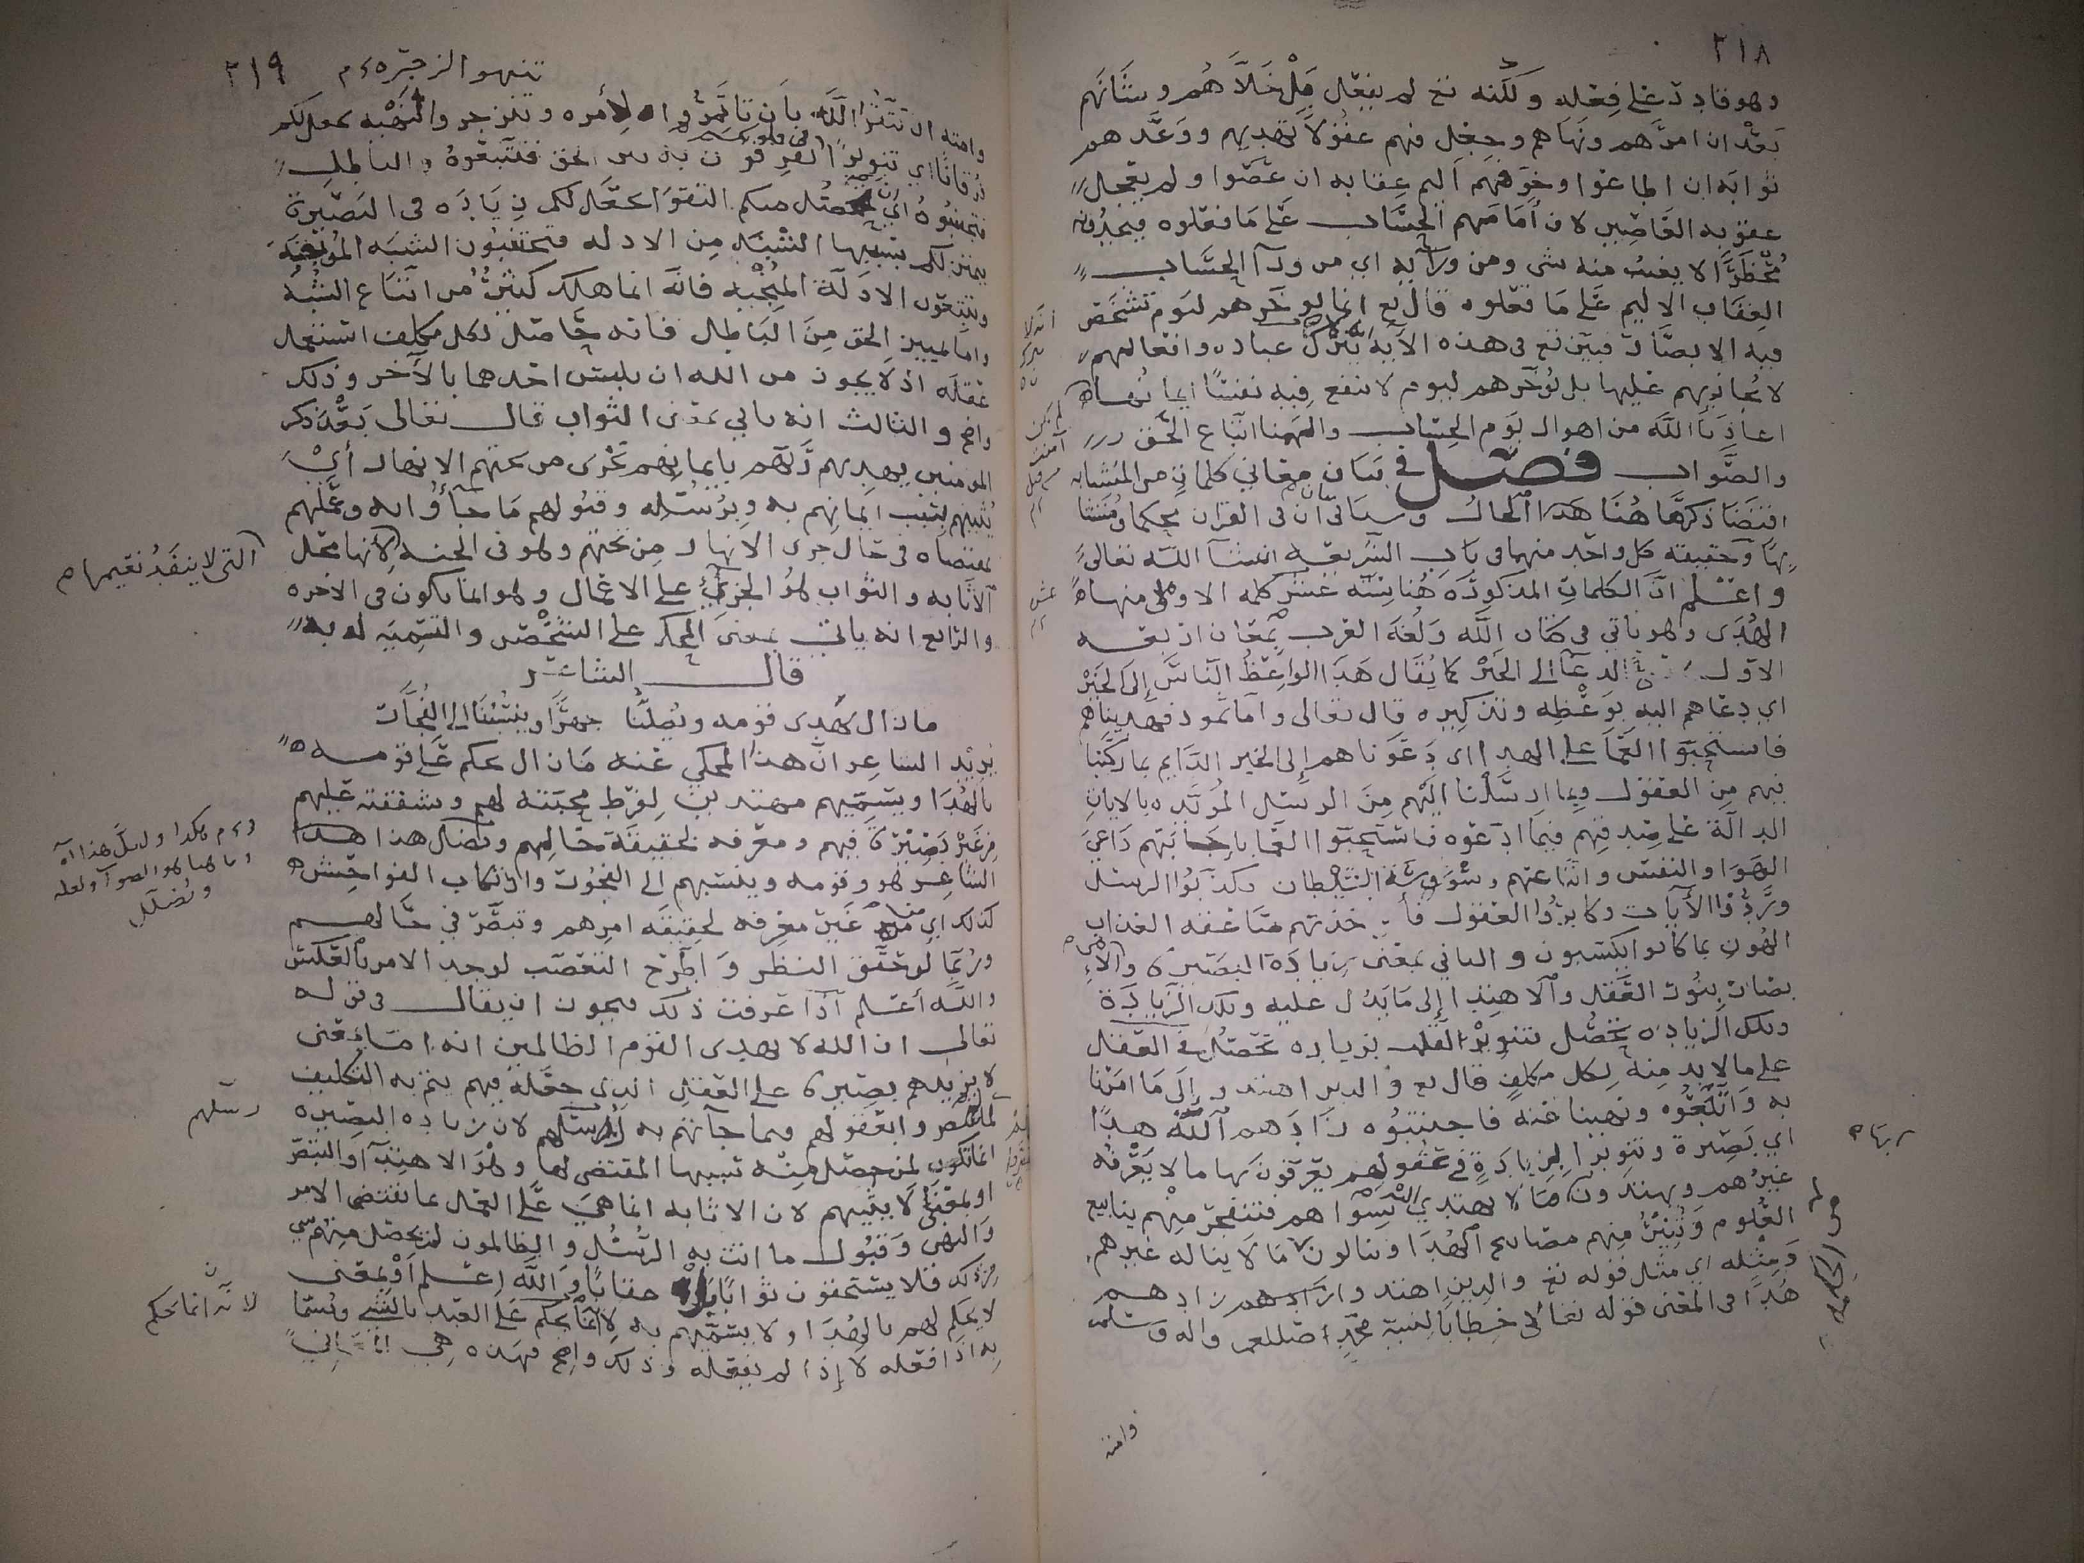 ٢١٨
وهو قادر على فعله ولكنه تع لم يفعل بل خلاهم وشانهم
بعد ان امرهم ونهاهم وجعل فيهم عقولا تهديهم ووعدهم
ثوابه ان اطاعوا وخوفهم اليم عقابه ان عصوا ولم يعجل
عقوبه العاصين لان امامهم الحساب على ما فعلوه فيجدونه
محضرا لا يغيب منه شي ومن ورآيه اي من ورآ الحساب
العقاب الاليم على ما فعلوه قال تع انما يوخرهم ليوم تشخص
فيه الابصار فبين تع في هذه الآية عباده وافعالهم
لا يجازيهم عليها بل يؤخرهم ليوم لا تنفع فيه نفسا ايمانها
اعاذنا الله من اهوال يوم الحساب والهمنا اتباع الحق
والصواب فصل في بيان معاني كلمات من المتشابه
اقتضا ذكرها هنا هذا الحال وسياتي ان في القران محكما ومتشا
بها وحقيقه كل واحد منهما في باب الشريعه انشآ الله تعالى
واعلم ان الكلمات المذكورة هنا ستة عشر كلمه الاولى منها
الهدى وهو ياتي في كتاب الله ولغة العرب بمعان اربعه
الاول الدعآ الى الخير كما يقال هدا الواعظ الناس إلى الخير
اي دعاهم اليه بوعظه وتذكيره قال تعالى واما ثمود فهديناهم
فاستحبوا العمآ على الهدا اي دعوناهم إلى الخير الدايم بما ركبنا
فيهم من العقول وبما ارسلنا اليهم من الرسل المؤيده بالايات
الدالة على صدقهم فيما ادعوه فاستحبوا العما باجابتهم داعي
الهوا والنفس واتباعهم وسوسة الشيطان وكذبوا الرسل
وردوا الآيات وكابروا العقول فأخذتهم صاعقه العذاب
الهون بما كانوا يكسبون والثاني بمعنى زيادة البصيرة
بصار بنور العقل والاهتدا إلى ما يدل عليه وتلك الزيادة
وتلك الزياده تحصل بتنوير القلب بزياده تحصل في العقل
على ما لا بد منه لكل مكلف قال تع والدين اهتدوا إلى ما امرنا
به واتبعوه ونهينا عنه فاجتنبوه زادهم الله هدا
اي بصيرة وتنويرا لزيادة في عقولهم يعرفون بها ما لا يعرفه
غيرهم ويهتدون ما لا يهتدي سواهم فتنفجر منهم ينابيع
العلوم وتنير منهم مصابيح الهدا وينالون ما لا يناله غيرهم
ومثله اي مثل قوله تع والدين اهتدوا زادهم
هدا في المعنى قوله تعالى خطابا لنبيه محمد صللعم واله وسلم
وامته
ربها م
٢١٩
تنهوا لزجره م
وامته ان تتقوا الله بان تاتمروا لأمره وتنزجروا لنهيه يجعل لكم
فرقانا اي تنويرا تفرقون به بين الحق فتتبعوه والباطل
فتجتنبوه اي ان حصل منكم التقوا يحعل لكم زيادة في البصيرة
يميز لكم بسببها الشبه من الادله فتجتنبون الشبه الموبقه
وتتبعون الادلة المنجيه فانه انما هلك كثير من اتباع الشبه
واما تمييز الحق من الباطل فانه حاصل لكل مكلف استعمل
عقله اذ لا يجوز من الله ان يلبس احدهما بالآخر وذلك
واضح والثالث انه ياتي بمعنى الثواب قال تعالى بعد ذكر
المومنين يهديهم ربهم بايمانهم تجري من تحتهم الانهار أي
يثيبهم بسبب ايمانهم به وبرسله وقبولهم ما جآؤا به وعملهم
بمقتضاه في حال جري الانهار من تحتهم وهو في الجنه لانها محل
الاثابه والثواب هو الجزآء على الاعمال وهو انما يكون في الاخره
التي لا ينفد نعيمها م
والرابع انه ياتي بمعنى الحكم على الشخص والتسميه له به
قال الشاعر
مازال يهدى قومه ويضلنا جهرا وينسبنا الى الفجات
يريد الشاعر ان هذا المحكي عنه مازال يحكم على قومه
بالهدا ويسميهم مهتدين لفرط محبته لهم وشفقته عليهم
من غير بصيرة فيهم ومعرفه لحقيقة حالهم وبضلال هذا
الشاعر هو وقومه وينسبهم الى الفجور وارتكاب الفواحش
كذلك اي من غير معرفه لحقيقه امرهم وتبصر في حالهم
وربما لو حقق النظر واطرح التعصب لوجد الامر بالعكس
والله أعلم اذا عرفت ذلك فيجوز ان يقال في قوله
تعالى ان الله لا يهدى القوم الظالمين انه اما بمعنى
لا يزيدهم بصيرة على العقل الذي جعله فيهم يتم به التكليف
وابعقولهم فيما جآتهم به رسلهم لان زياده البصيره
رسلهم
انما تكون لمن حصل منه سببها المقتضى لها وهو الاهتدآ والتبصر
او بمعنى لا يثيبهم لان الاثابه انما هي على العمل بما يقتضي الامر
والنهى وقبول ما اتت به الرسل والظالمون لم يحصل منهم شي
من ذلك فلا يستحقون ثوابا بل عقابا والله اعلم او بمعنى
لا يحكم لهم بالهدا ولا يسميهم به لانه انما يحكم على العبد بالشي ويسما
لانه انما يحكم
به اذا فعله لا إذا لم يفعله وذلك واضح فهذه هي